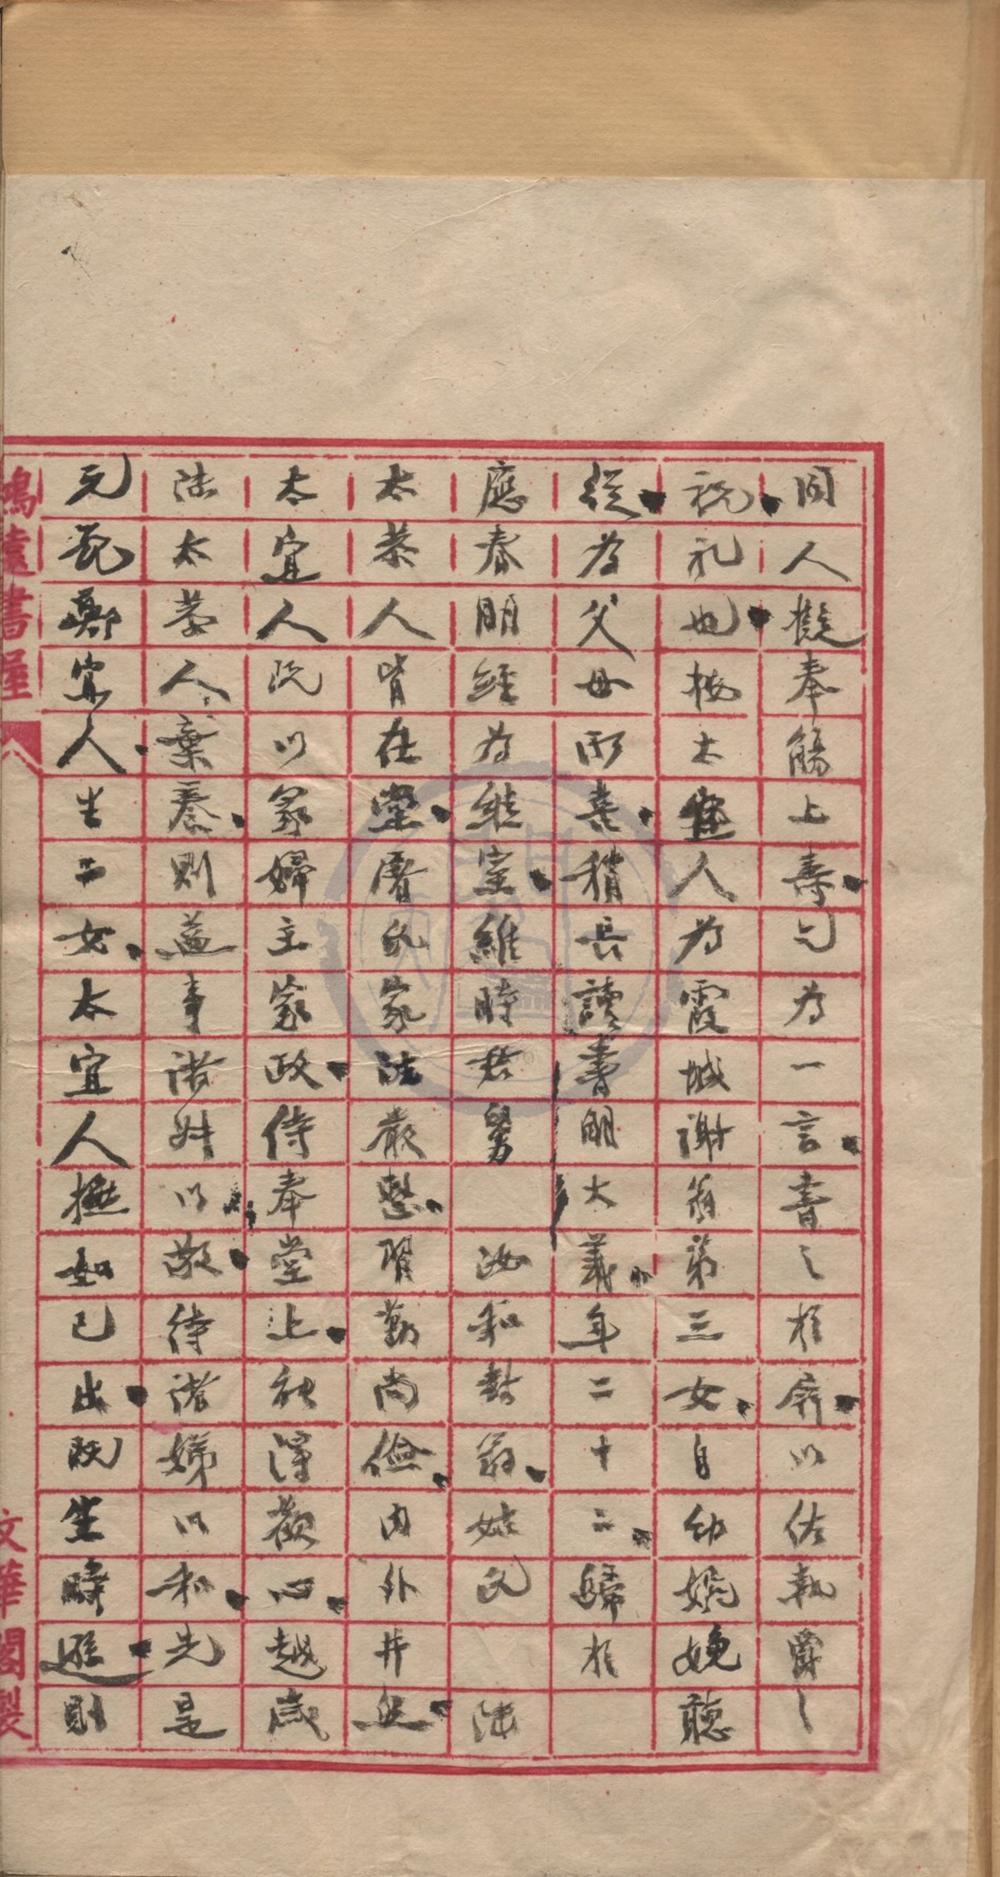 同人擬奉觴上壽匄為一言書之於屏以佐執爵之
祝礼也按太宜人為霞城謝翁第三女自幼婉娩聽
從為父母所喜稍長讀書明大義年二十二歸於
應春明經為継室維時君舅 汝和封翁姑氏 陳
太恭人皆在堂膺氏家法嚴懇習勤尚儉内外井然
太宜人既以冢婦主家政侍奉堂上祗得歡心越歲
陳太恭人棄養則益事諸姑以敬待諸娣以和先是
元配鄭宜人生二女太宜人撫如己出既生時遜則
鴻遠書屋
文華閣製